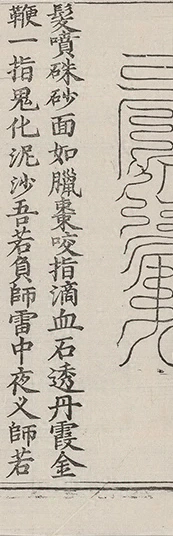 髮噴硃砂面如臘棗咬指滴血石透丹霞金
鞭一指鬼化泥沙吾若負師雷中夜义師若